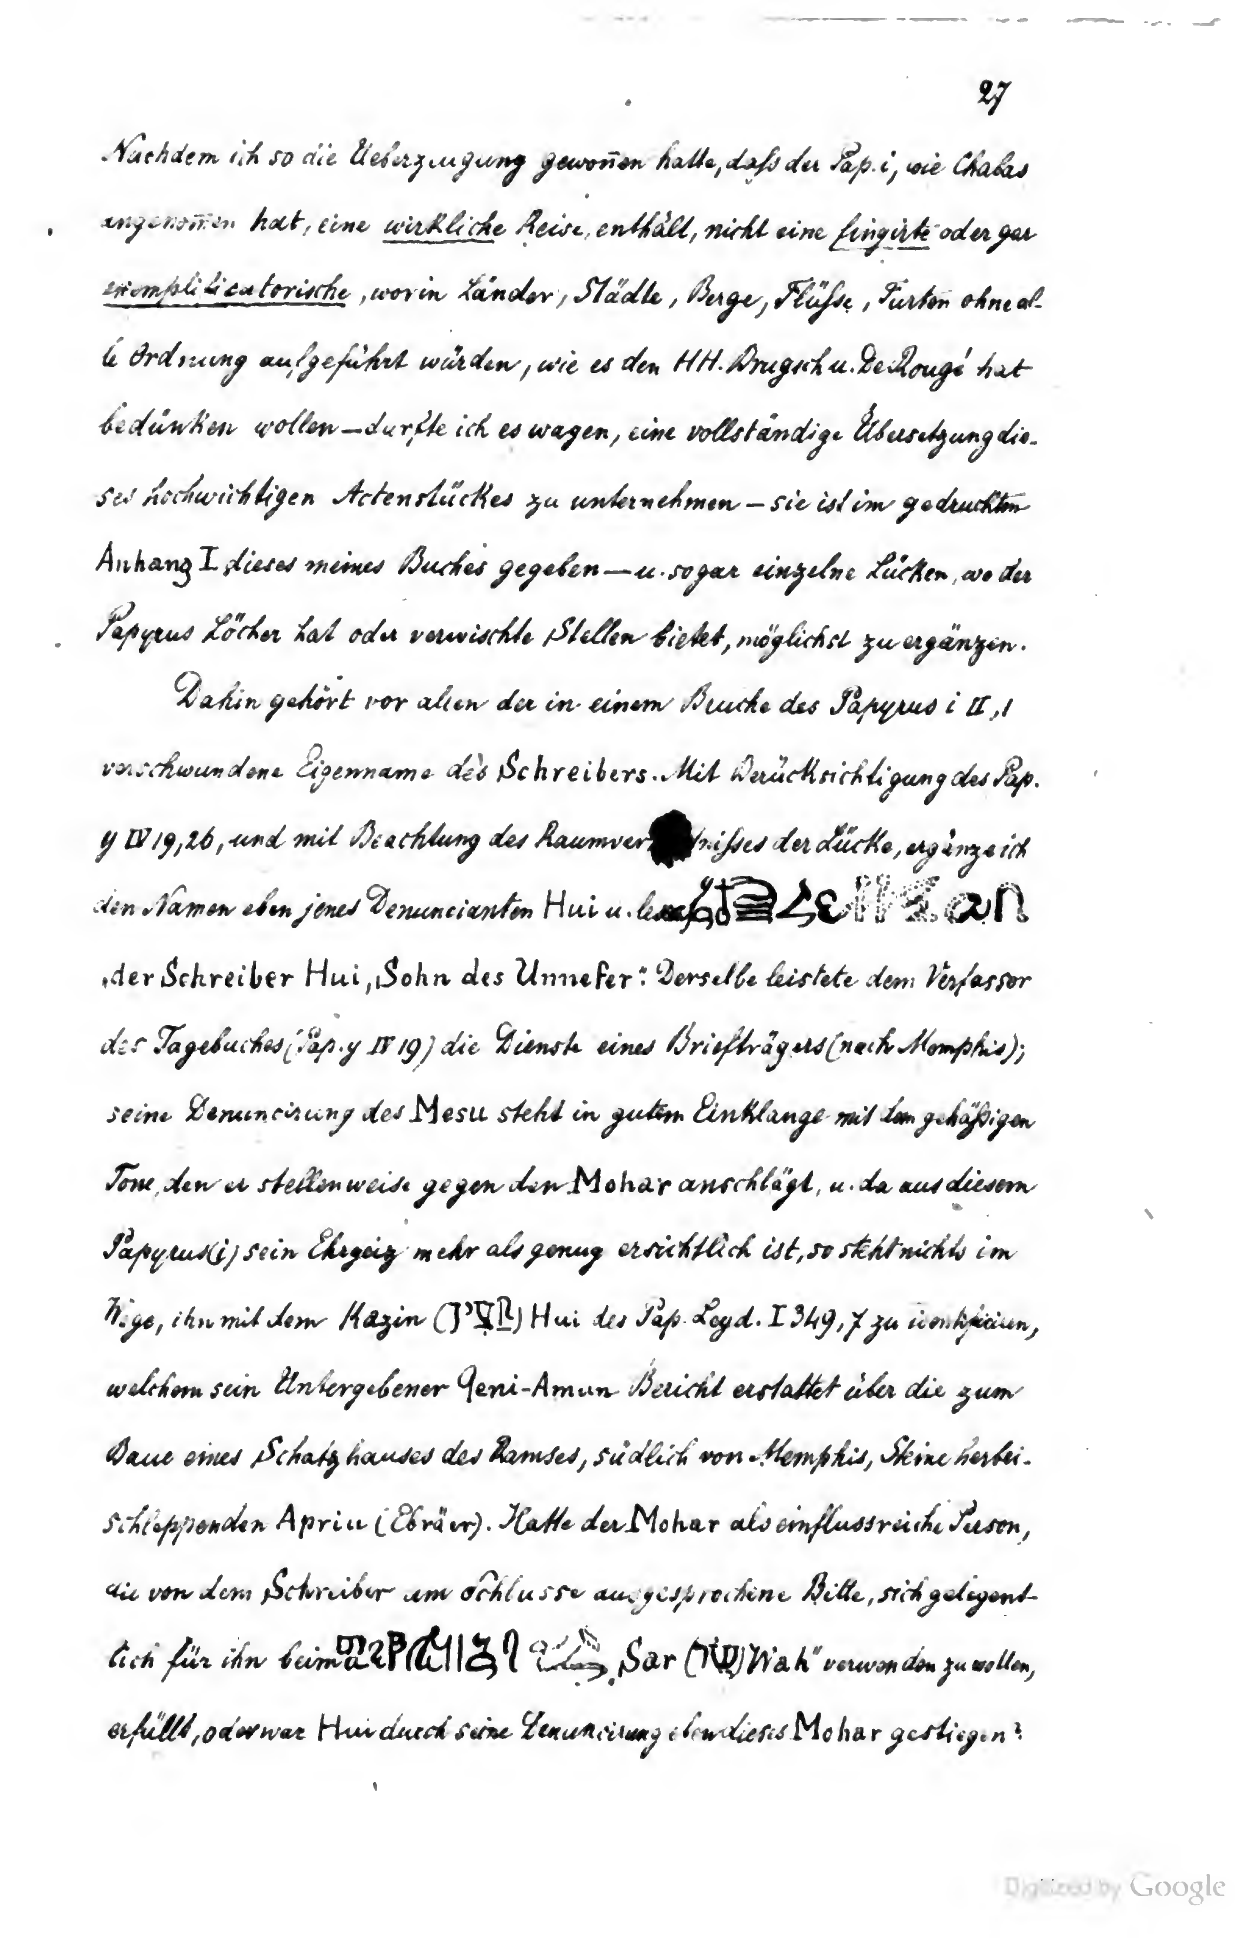 27
Nachdem ich so die Ueberzeugung gewon̄en hatte, daſs der Pap. i, wie Chabas
angenom̄en hat, eine wirkliche Reise, enthält, nicht eine fingirte oder gar
exemplificatorische, worin Länder, Städte, Berge, Flüſse, Furten ohne al-
le Ordnung aufgeführt würden, wie es den HH. Brugsch u. De Rougé hat
bedünken wollen – durfte ich es wagen, eine vollständige Übersetzung die-
ses hochwichtigen Actenstückes zu unternehmen – sie ist im gedruckten
Anhang I dieses meines Buches gegeben – u. sogar einzelne Lücken, wo der
Papyrus Löcher hat oder verwischte Stellen bietet, möglichst zu ergänzen.
Dahin gehört vor allen der in einem Bruche des Papyrus i II, 1
verschwundene Eigenname des Schreibers. Mit Berücksichtigung des Pap.
y IV 19, 26, und mit Beachtung des Raumver niſses der Lücke, ergänze ich
den Namen eben jenes Denuncianten Hui u. lese
„der Schreiber Hui, Sohn des Unnefer“: Derselbe leistete dem Verfasser
des Tagebuches (Pap. y IV 19) die Dienste eines Briefträgers (nach Memphis);
seine Denuncirung des Mesu steht in gutem Einklange mit dem gehäßigen
Tone, den er stellenweise gegen den Mohar anschlägt, u. da aus diesem
Papyrus (i) sein Ehrgeiz mehr als genug ersichtlich ist, so steht nichts im
Wege, ihn mit dem Kazin (קצין) Hui des Pap. Leyd. I 349, 7 zu identificiren,
welchem sein Untergebener Qeni-Amun Bericht erstattet über die zum
Baue eines Schatzhauses des Ramses, südlich von Memphis, Steine herbei-
schleppenden Apriu (Ebräer). Hatte der Mohar als einflussreiche Person,
die von dem Schreiber am Schlusse ausgesprochene Bitte, sich gelegent-
lich für ihn beim Sar (שר) Wah“ verwenden zu wollen,
erfüllt, oder war Hui durch seine Denuncirung eben dieses Mohar gestiegen?
Digitized by Google